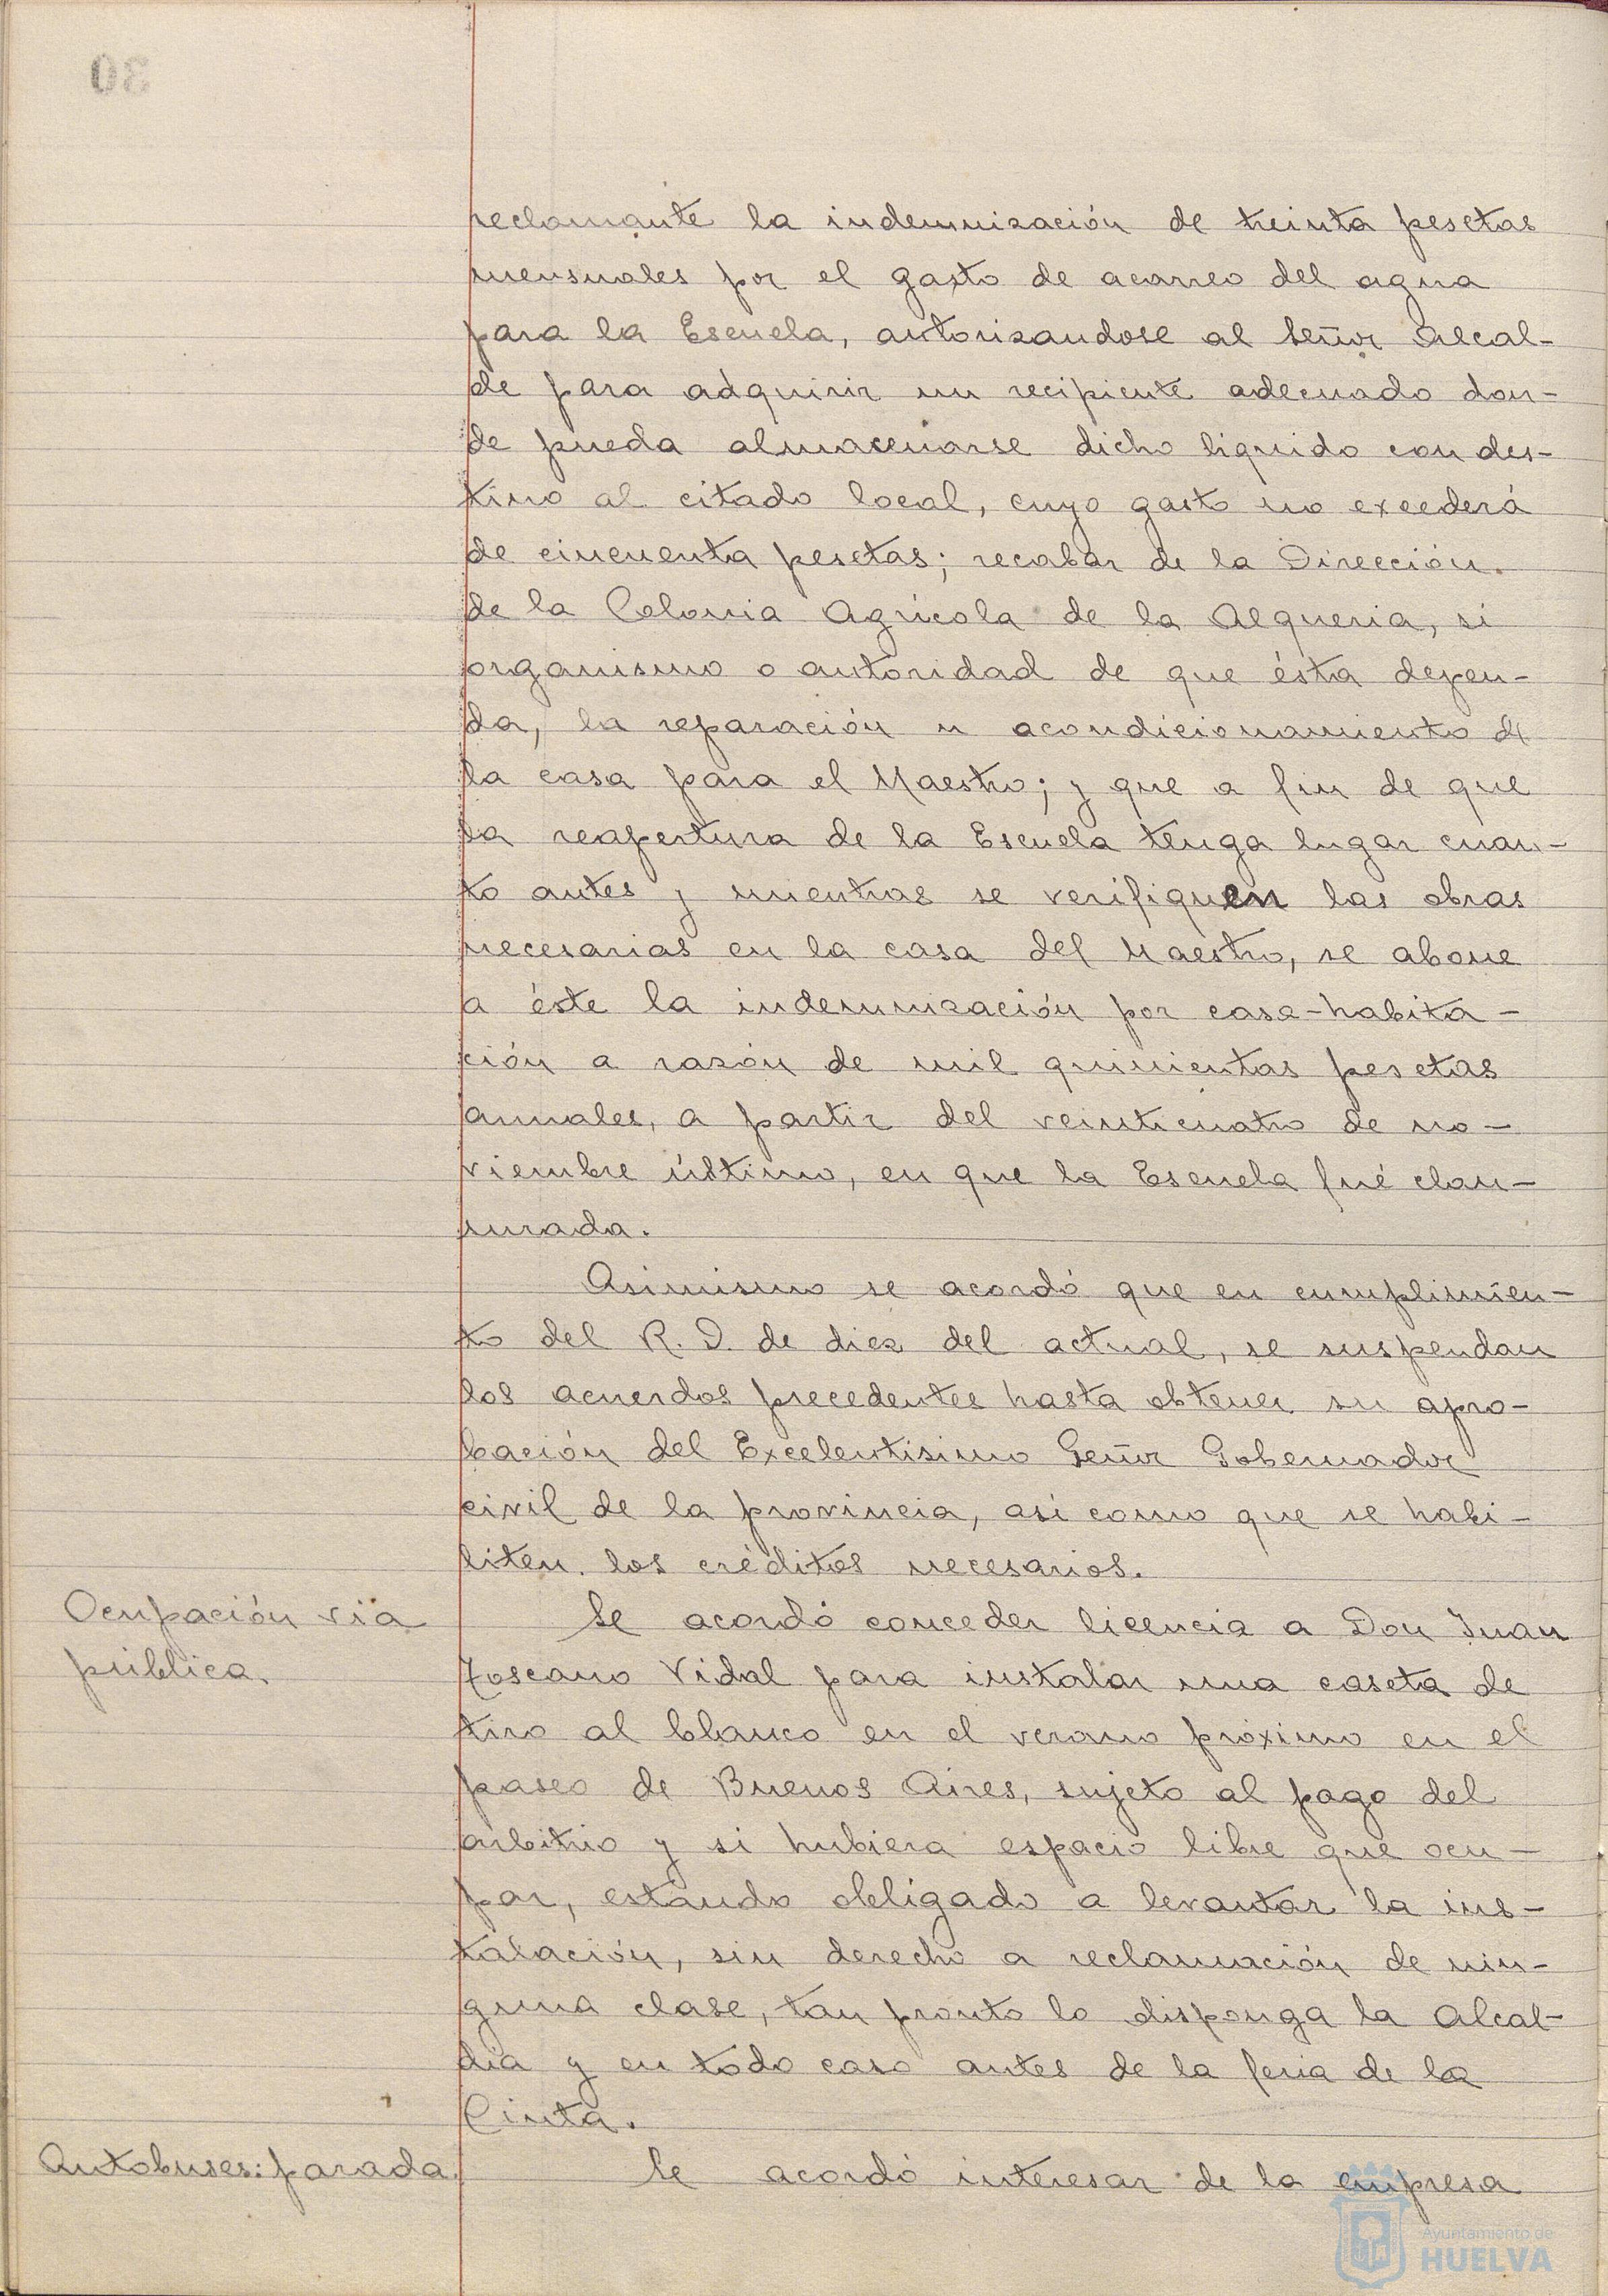 30
reclamante la indemnización de treinta pesetas
mensuales por el gasto de acarreo del agua
para la Escuela, autorizandose al Señor Alcal-
de para adquirir un recipiente adecuado don-
de pueda almacenarse dicho liquido con des-
tino al citado local, cuyo gasto no excederá
de cincuenta pesetas; recabar de la Dirección
de la Colonia Agrícola de la Alqueria, si
organismo o autoridad de que ésta depen-
da, la reparación u acondicionamiento de
la casa para el Maestro; y que a fin de que
la reapertura de la Escuela tenga lugar cuan-
to antes y mientras se verifiquen las obras
necesarias en la casa del Maestro, se abone
a éste la indemnización por casa-habita-
ción a razón de mil quinientas pesetas
anuales, a partir del veinticuatro de no-
viembre último, en que la Escuela fué clau-
surada.
Asimismo se acordó que en cumplimien-
to del R. D. de diez del actual, se suspendan
los acuerdos precedentes hasta obtener su apro-
bación del Excelentísimo Señor Gobernador
civil de la provincia, así como que se habi-
liten los créditos necesarios.
Ocupación vía
pública.
Se acordó conceder licencia a Don Juan
Toscano Vidal para instalar una caseta de
tiro al blanco en el verano próximo en el
paseo de Buenos Aires, sujeto al pago del
arbitrio y si hubiera espacio libre que ocu-
par, estando obligado a levantar la ins-
talación, sin derecho a reclamación de nin-
guna clase, tan pronto lo disponga la Alcal-
día y en todo caso antes de la feria de la
Cinta.
Autobuses: parada.
Se acordó interesar de la empresa
Ayuntamiento de
HUELVA